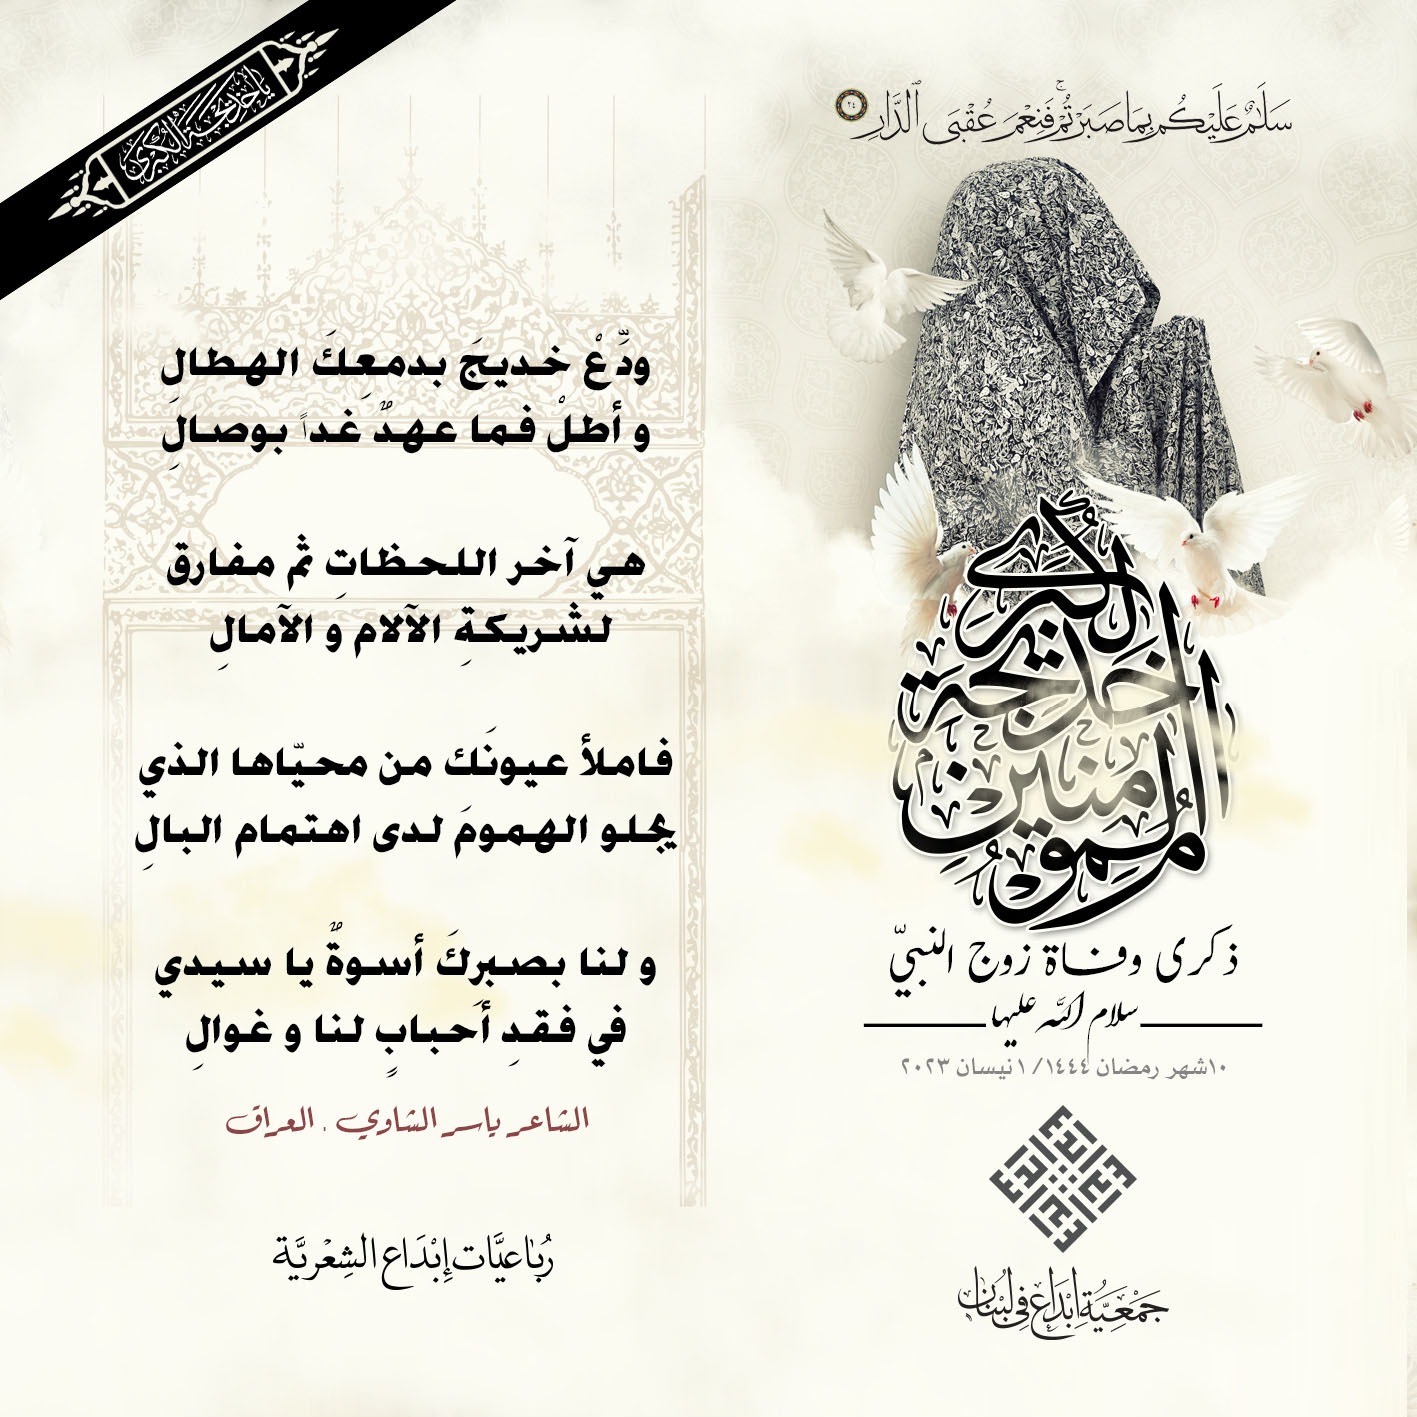 سَلَٰمٌ عَلَيْكُم بِمَا صَبَرْتُمْ ۚ فَنِعْمَ عُقْبَى ٱلدَّارِ ٢٤
يا خديجة الكبرى
ودِّعْ خديجَ بدمعِكَ الهطالِ
و أطلْ فما عهدٌ غداً بوصالِ
هي آخر اللحظاتِ ثم مفارق
لشريكةِ الآلام و الآمالِ
فاملأ عيونَك من محيّاها الذي
يجلو الهمومَ لدى اهتمام البالِ
و لنا بصبركَ أسوةٌ يا سيدي
في فقدِ أحبابٍ لنا و غوالِ
الشاعر ياسر الشاوي . العراق
رُبَاعيَّات إِبْدَاع الشِعْريَّة
أم المؤمنين خديجة الكبرى
ذكرى وفاة زوج النبيّ
سلام الله عليها
١٠شهر رمضان ١٤٤٤/ ١نيسان ٢٠٢٣
جَمْعِيَّةُ إِبْدَاع في لُبْنَان